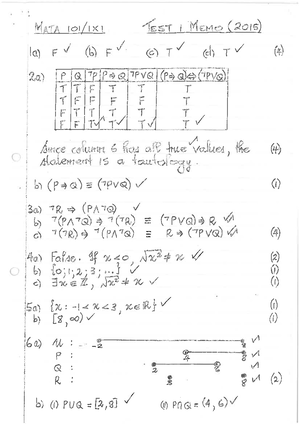 MATA 101/1X1 TEST 1 MEMO (2015)
1a) F ✓ (b) F ✓ (c) T ✓ (d) T ✓ (2)
2a) P Q ¬P P⇒Q ¬P∨Q (P⇒Q)⇔(¬P∨Q)
T T F T T T
T F F F F T
F T T T T T
F F T✓ T✓ T✓ T ✓
Since column 6 has all true values, the ✓
statement is a tautology. (4)
b) (P⇒Q) ≡ (¬P∨Q) ✓ (1)
3a) ¬R ⇒ (P∧¬Q) ✓
b) ¬(P∧¬Q) ⇒ ¬(¬R) ≡ (¬P∨Q) ⇒ R ✓
c) ¬(¬R) ⇒ ¬(P∧¬Q) ≡ R ⇒ (¬P∨Q) ✓ (4)
4a) False. If x<0, √x² ≠ x ✓✓ (2)
b) {0; 1; 2; 3; ...} ✓ (1)
c) ∃x ∈ ℤ, √x² ≠ x ✓ (1)
5a) {x : -1 < x < 3, x ∈ ℝ} ✓ (1)
b) [8, ∞) ✓ (1)
6a) U :
P :
Q :
R : (2)
b) (i) P∪Q = [2, 8] ✓ (ii) P∩Q = (4, 6) ✓